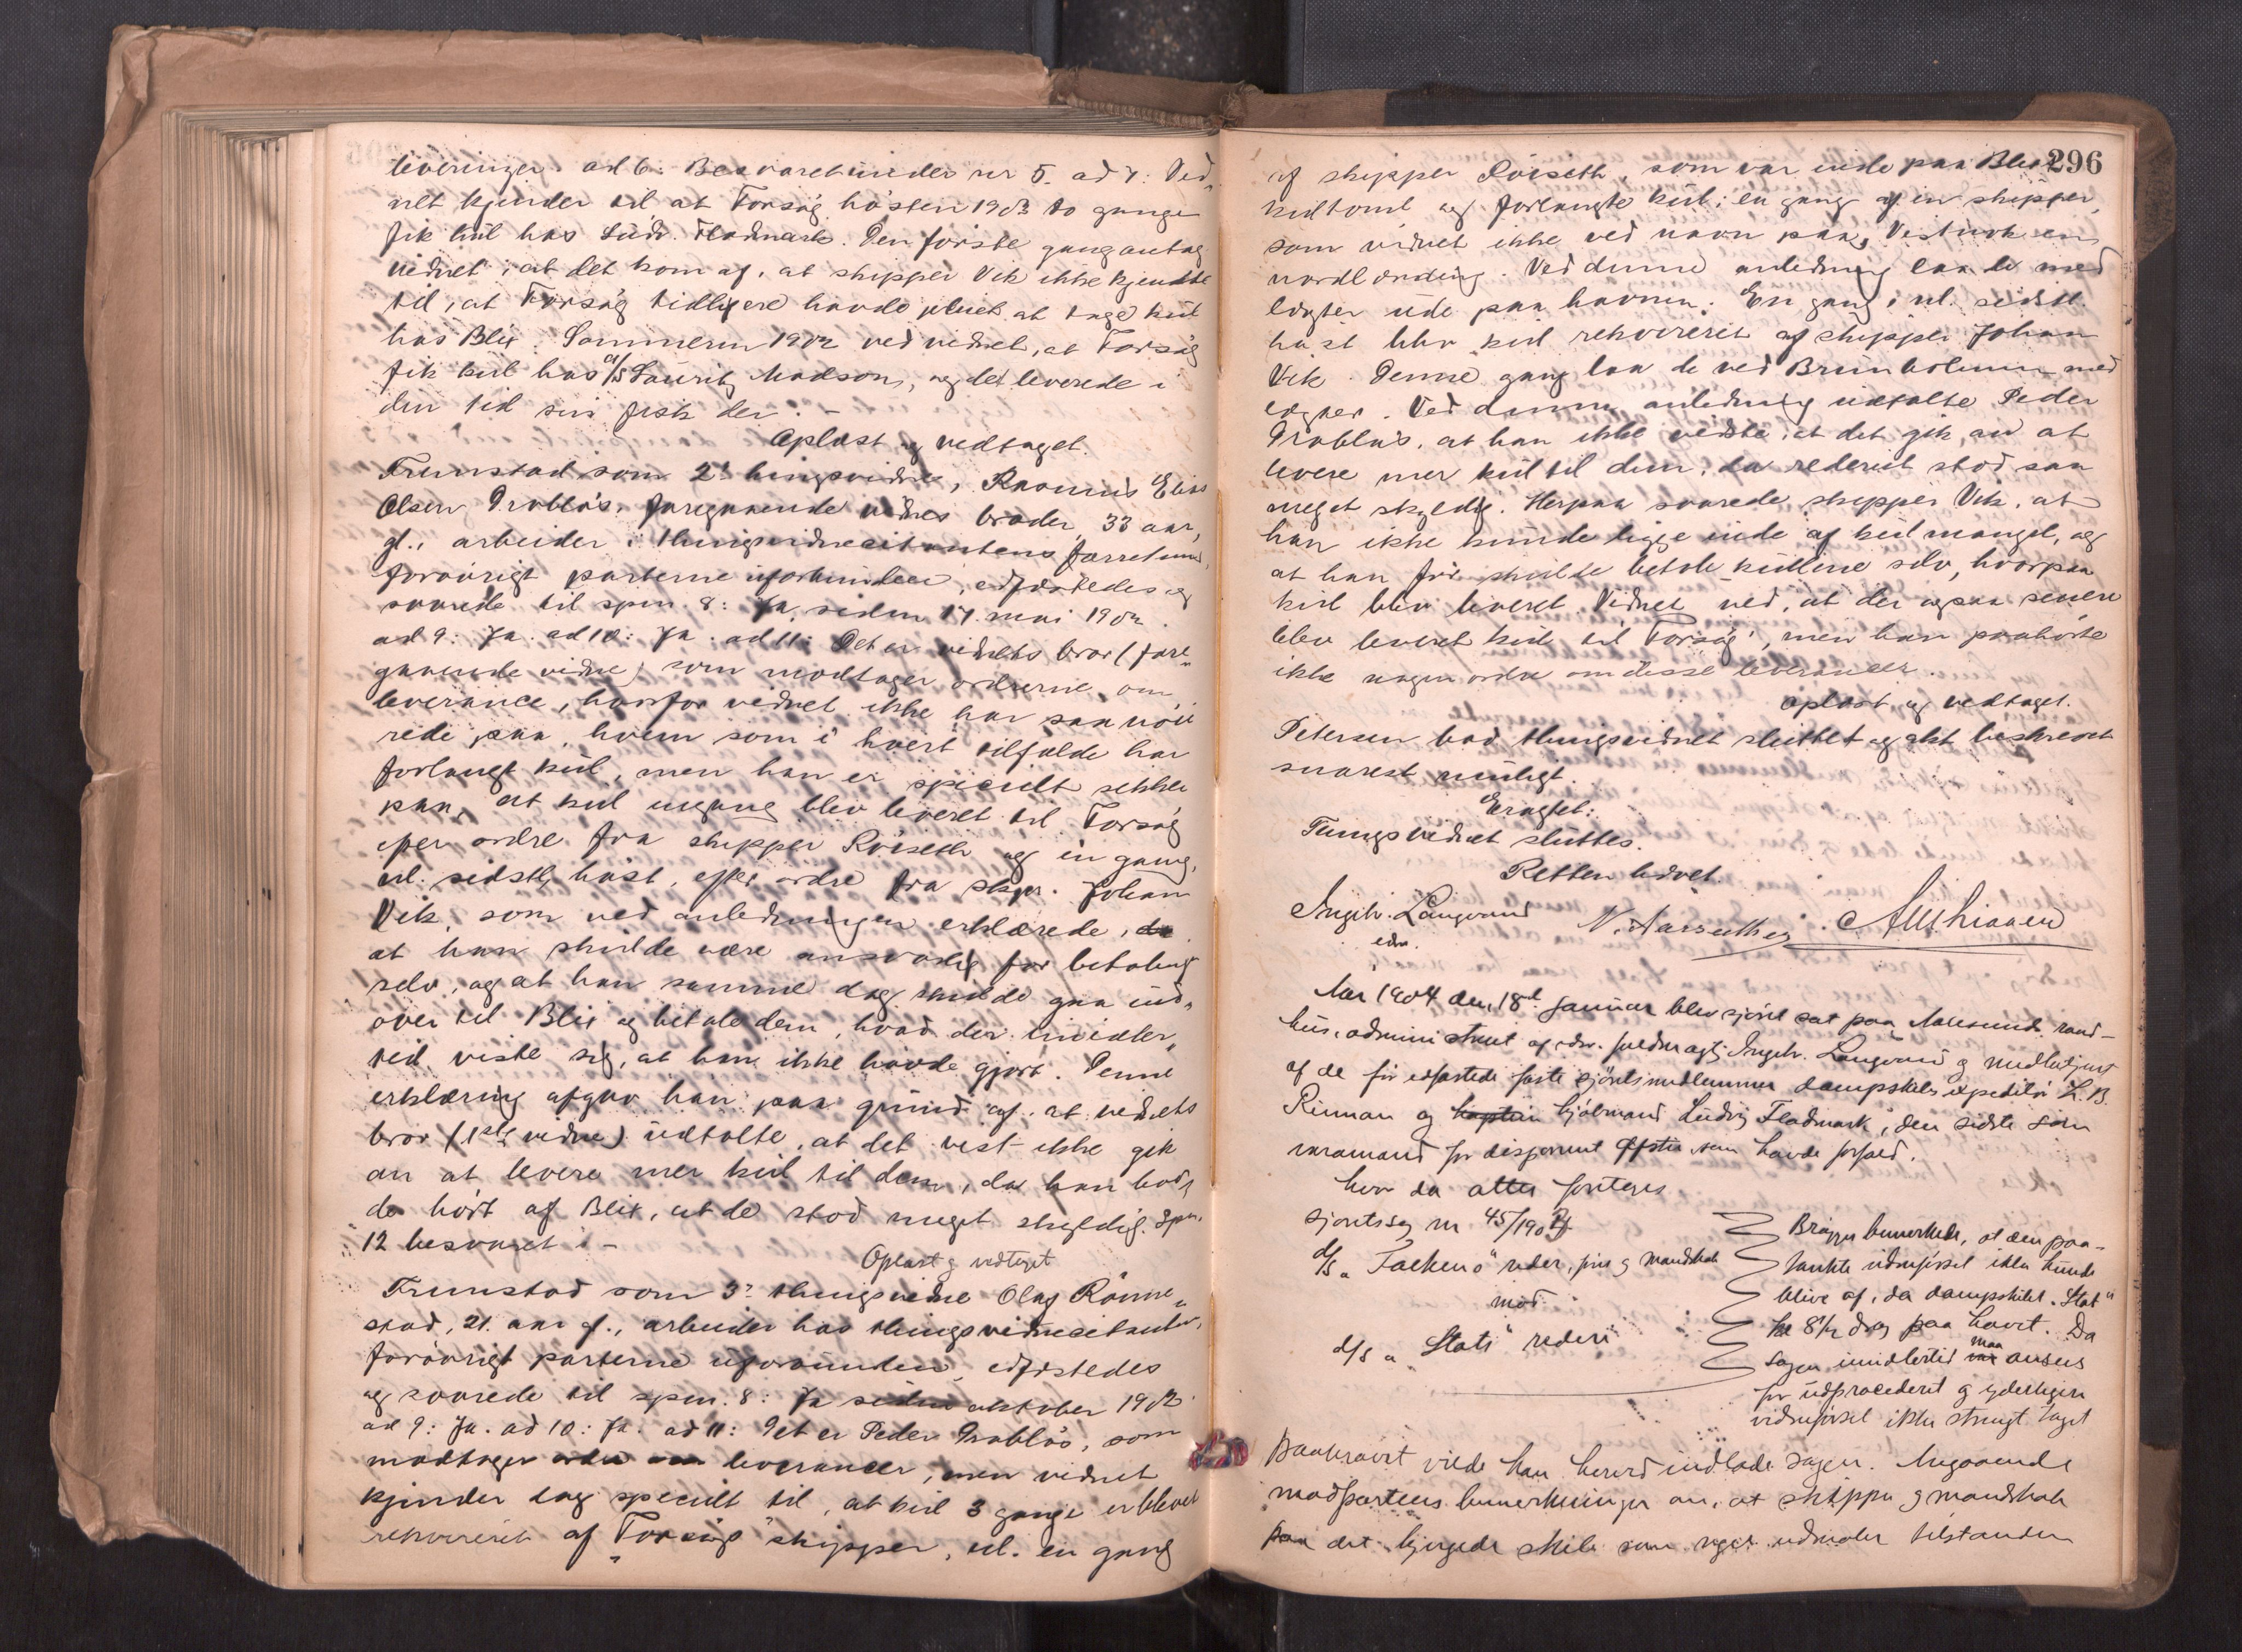 leveringer. ad 6: Besvaret under nr 5. ad 7: Vid-
net kjender til at Forsøg høsten 1903 to gange
fik kul hos Ludv. Fladmark. Den første gang antag
vidnet, at det kom af, at skipper Vik ikke kjendte
til, at Forsøg tidligere havde pleiet at tage kul
hos Blix. Sommeren 1902 ved vidnet, at Forsøg
fik kul hos a/s Lauritz Madsen, og det leverede i
den tid sin fisk der. -
Oplæst og vedtaget.
Fremstod som 2det thingsvidne, Rasmus Elias
Olsen Grebløs, foregaaende vidnes broder, 33 aar
gl., arbeider i thingsvidnecitantens forretning,
forøvrigt parterne uforbunden, edfæstedes og
svarede til spm. 8: Ja, siden 17. mai 1902.
ad 9: Ja. ad 10: Ja. ad 11: Det er vidnets bror (fore-
gaaende vidne) som modtager ordrerne om
leverance, hvorfor vidnet ikke har saa nøie
rede paa, hvem som i hvert tilfælde har
forlangt kul, men han er specielt sikker
paa, at kul engang blev leveret til Forsøg
efter ordre fra skipper Røiseth og en gang,
nl. sidstl. høst, efter ordre fra skpr. Johan
Vik, som ved anledningen erklærede, da
at han skulde være ansvarlig for betaling
selv, og at han samme dag skulde gaa ind-
over til Blix og betale dem, hvad der imidler-
tid viste sig, at han ikke havde gjort. Denne
erklæring afgav han paa grund af, at vidnets
bror (1ste vidne) udtalte, at det vist ikke gik
an at levere mer kul til dem, da han hav-
de hørt af Blix, at de stod meget skyldig. Spm.
12 besvaret i -
Oplæst og vedtaget
Fremstod som 3die thingsvidne Olaf Rønne-
stad, 21 aar gl., arbeider hos thingsvidnecitanten,
forøvrigt parterne uforbunden, edfæstedes
og svarede til spm. 8: Ja siden oktober 1902.
ad 9: Ja. ad 10: Ja. ad 11: Det er Peder Grebløs, som
modtager ordre om leverancer, men vidnet
kjender dog specielt til, at kul 3 gange er blevet
rekvireret af "Forsøgs" skipper, nl. en gang
296
af skipper Røiseth, som var inde paa Blix
kultomt og forlangte kul; en gang af en skipper,
som vidnet ikke ved navn paa, vistnok en
nordlænding. Ved denne anledning laa de med
lægter ude paa havnen. En gang, nl. sidstl.
høst blev kul rekvireret af skipper Johan
Vik. Denne gang laa de ved Brunholmen med
lægter. Ved denne anledning udtalte Peder
Grebløs, at han ikke vidste, at det gik an at
levere mer kul til dem, da rederiet stod saa
meget skyldig. Herpaa svarede skipper Vik, at
han ikke kunde ligge inde af kulmangel, og
at han før skulde betale kullene selv, hvorpaa
kul blev leveret. Vidnet ved, at der ogsaa senere
blev leveret kul til "Forsøg", men han paahørte
ikke nogen ordre om disse leverancer.
oplæst og vedtaget.
Petersen bad thingsvidnet sluttet og akt beskrevet
snarest muligt.
Eragtet:
Tingsvidnet sluttes.
Retten hævet.
Ingolv. Langeland
edsv.
Aar 1904 den 18de januar blev sjøret sat paa Aalesunds raad-
hus, administreret af edsv. fuldmægtig Ingolv. Langeland og medbetjent
af de før edfæstede faste sjøretsmedlemmer dampskibsexpeditør L. B.
Rinnan og kaptein kjøbmand Ludvig Fladmark, den sidste som
varamand for disponent som havde forfald.
hvor da atter foretoges
Sjøretssag nr 45/1903
d/s "Jækens" reder, fører og mandskab
mod
d/s "Stats" rederi
Brøgger bemerkede, at den paa-
tænkte vidneførsel ikke kunde
blive af, da dampskibet "Stat"
kl 8 1/2 drog paa havet. Da
sagen imidlertid maa ansees
for udprocederet og yderligere
vidneførsel ikke strengt taget
Paakrævet vilde han herved indlade sagen. Angaaende
modpartens bemerkninger om, at skipper og mandskab
paa det bjergede skib som regel udmaler tilstanden